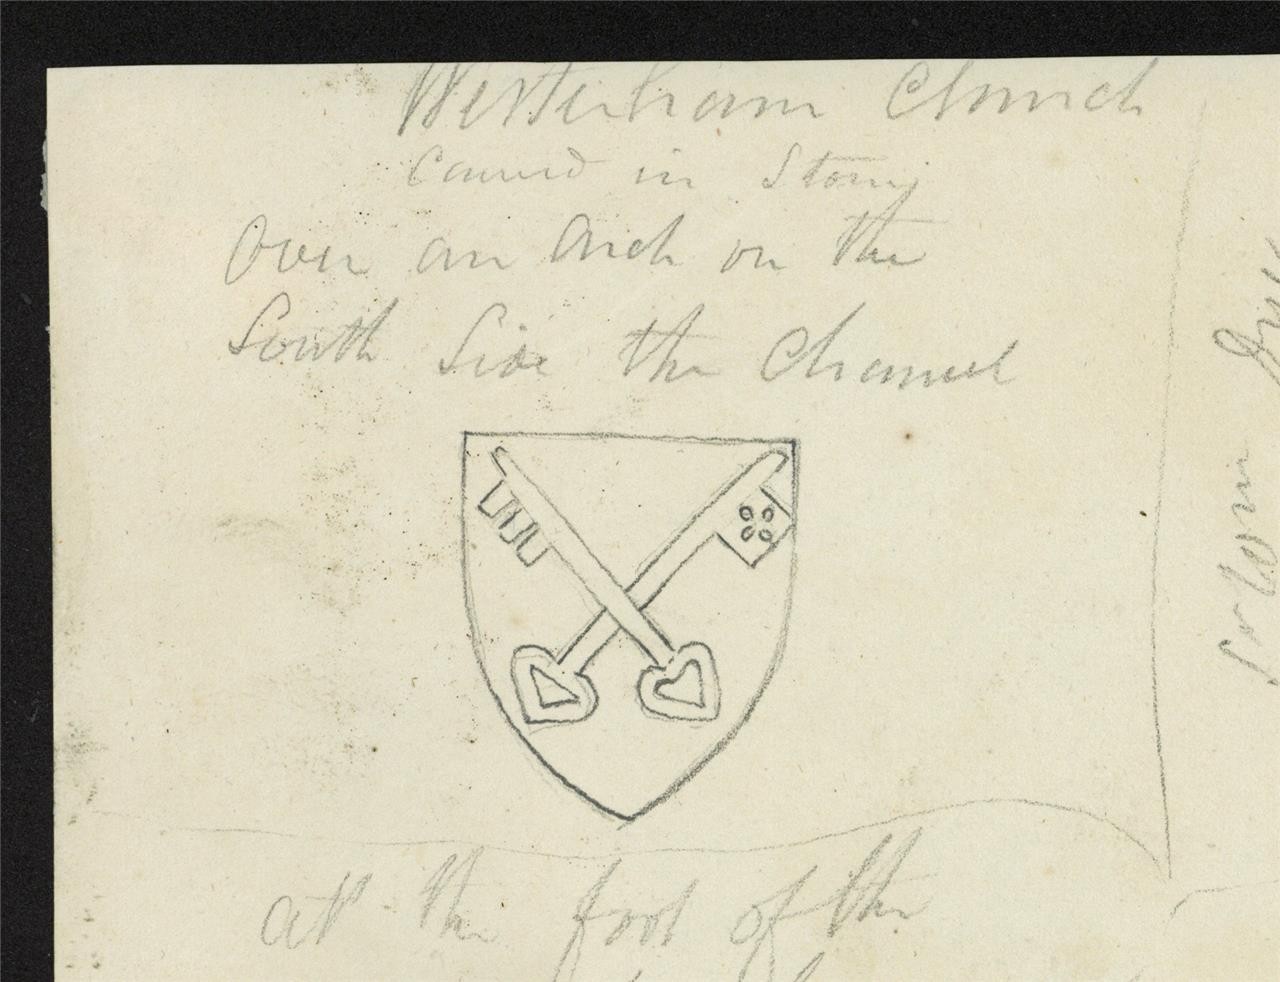 Westerham Church
Carved in Stone
Over an Arch on the
South Side the Chancel
at the foot of the